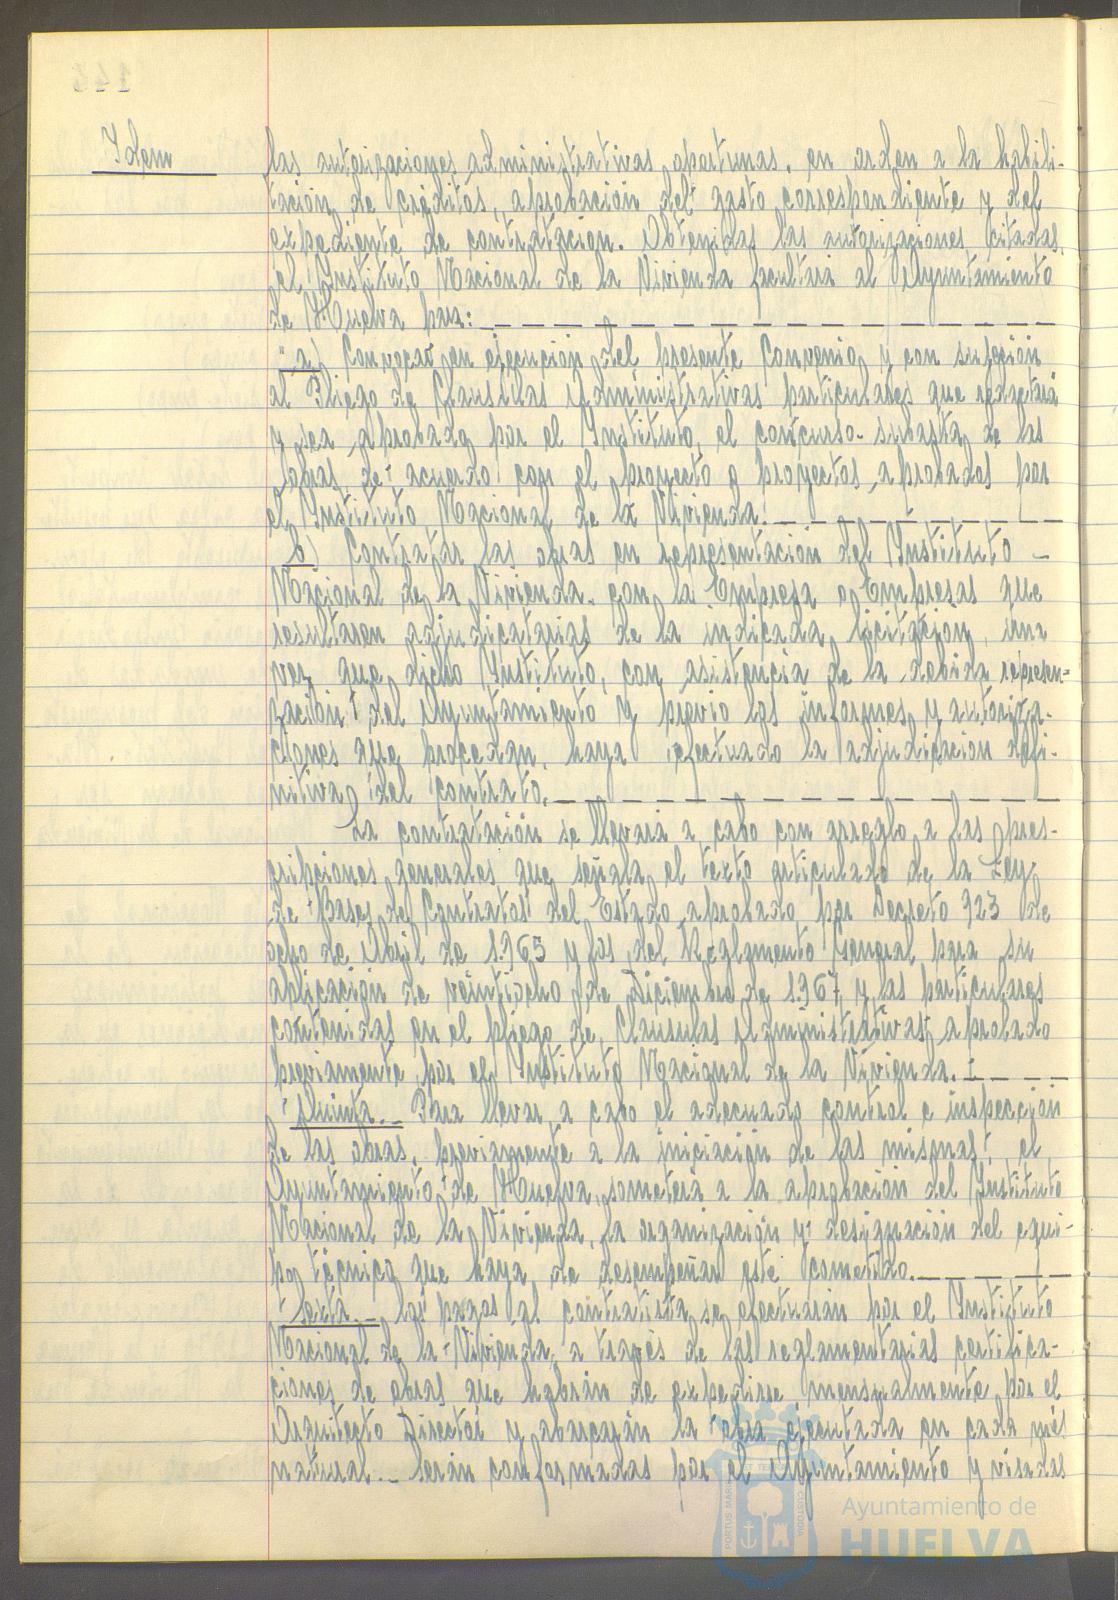 Idem
las autorizaciones administrativas oportunas, en orden a la habili-
tación de créditos, aprobación del gasto correspondiente y del
expediente de contratación. Obtenidas las autorizaciones citadas,
el Instituto Nacional de la Vivienda facultará al Ayuntamiento
de Huelva para:
"a) Convocar en ejecución del presente Convenio y con sujeción
al Pliego de Clausulas Administrativas particulares que redactará
y sea aprobado por el Instituto, el concurso-subasta de las
obras de acuerdo con el proyecto o proyectos aprobados por
el Instituto Nacional de la Vivienda.
b) Contratar las obras en representación del Instituto -
Nacional de la Vivienda con la Empresa o Empresas que
resultaren adjudicatarias de la indicada licitación, una
vez que dicho Instituto, con asistencia de la debida represen=
tación del Ayuntamiento y previo los informes y autoriza-
ciones que procedan, haya efectuado la adjudicación defi-
nitiva del contrato.
La contratación se llevará a cabo con arreglo a las pres-
cripciones generales que señala el texto articulado de la Ley
de Bases de Contratos del Estado aprobado por Decreto 923 de
ocho de Abril de 1.965 y los del Reglamento General para su
aplicación de veintiocho de Diciembre de 1.967, y las particulares
contenidas en el pliego de Clausulas Administrativas aprobado
previamente por el Instituto Nacional de la Vivienda.
Quinta.- Para llevar a cabo el adecuado control e inspección
de las obras, previamente a la iniciación de las mismas, el
Ayuntamiento de Huelva, someterá a la aprobación del Instituto
Nacional de la Vivienda, la organización y designación del equi-
po técnico que haya de desempeñar este cometido.
Sexta.- Los pagos al contratista se efectuarán por el Instituto
Nacional de la Vivienda a través de las reglamentarias certifica-
ciones de obras que habrán de expedirse mensualmente por el
Arquitecto Director y abarcarán la obra ejecutada en cada mes
natural.- Serán conformadas por el Ayuntamiento y visadas
PORTUS MARIS ET TERRAE CUSTODIA
Ayuntamiento de
HUELVA